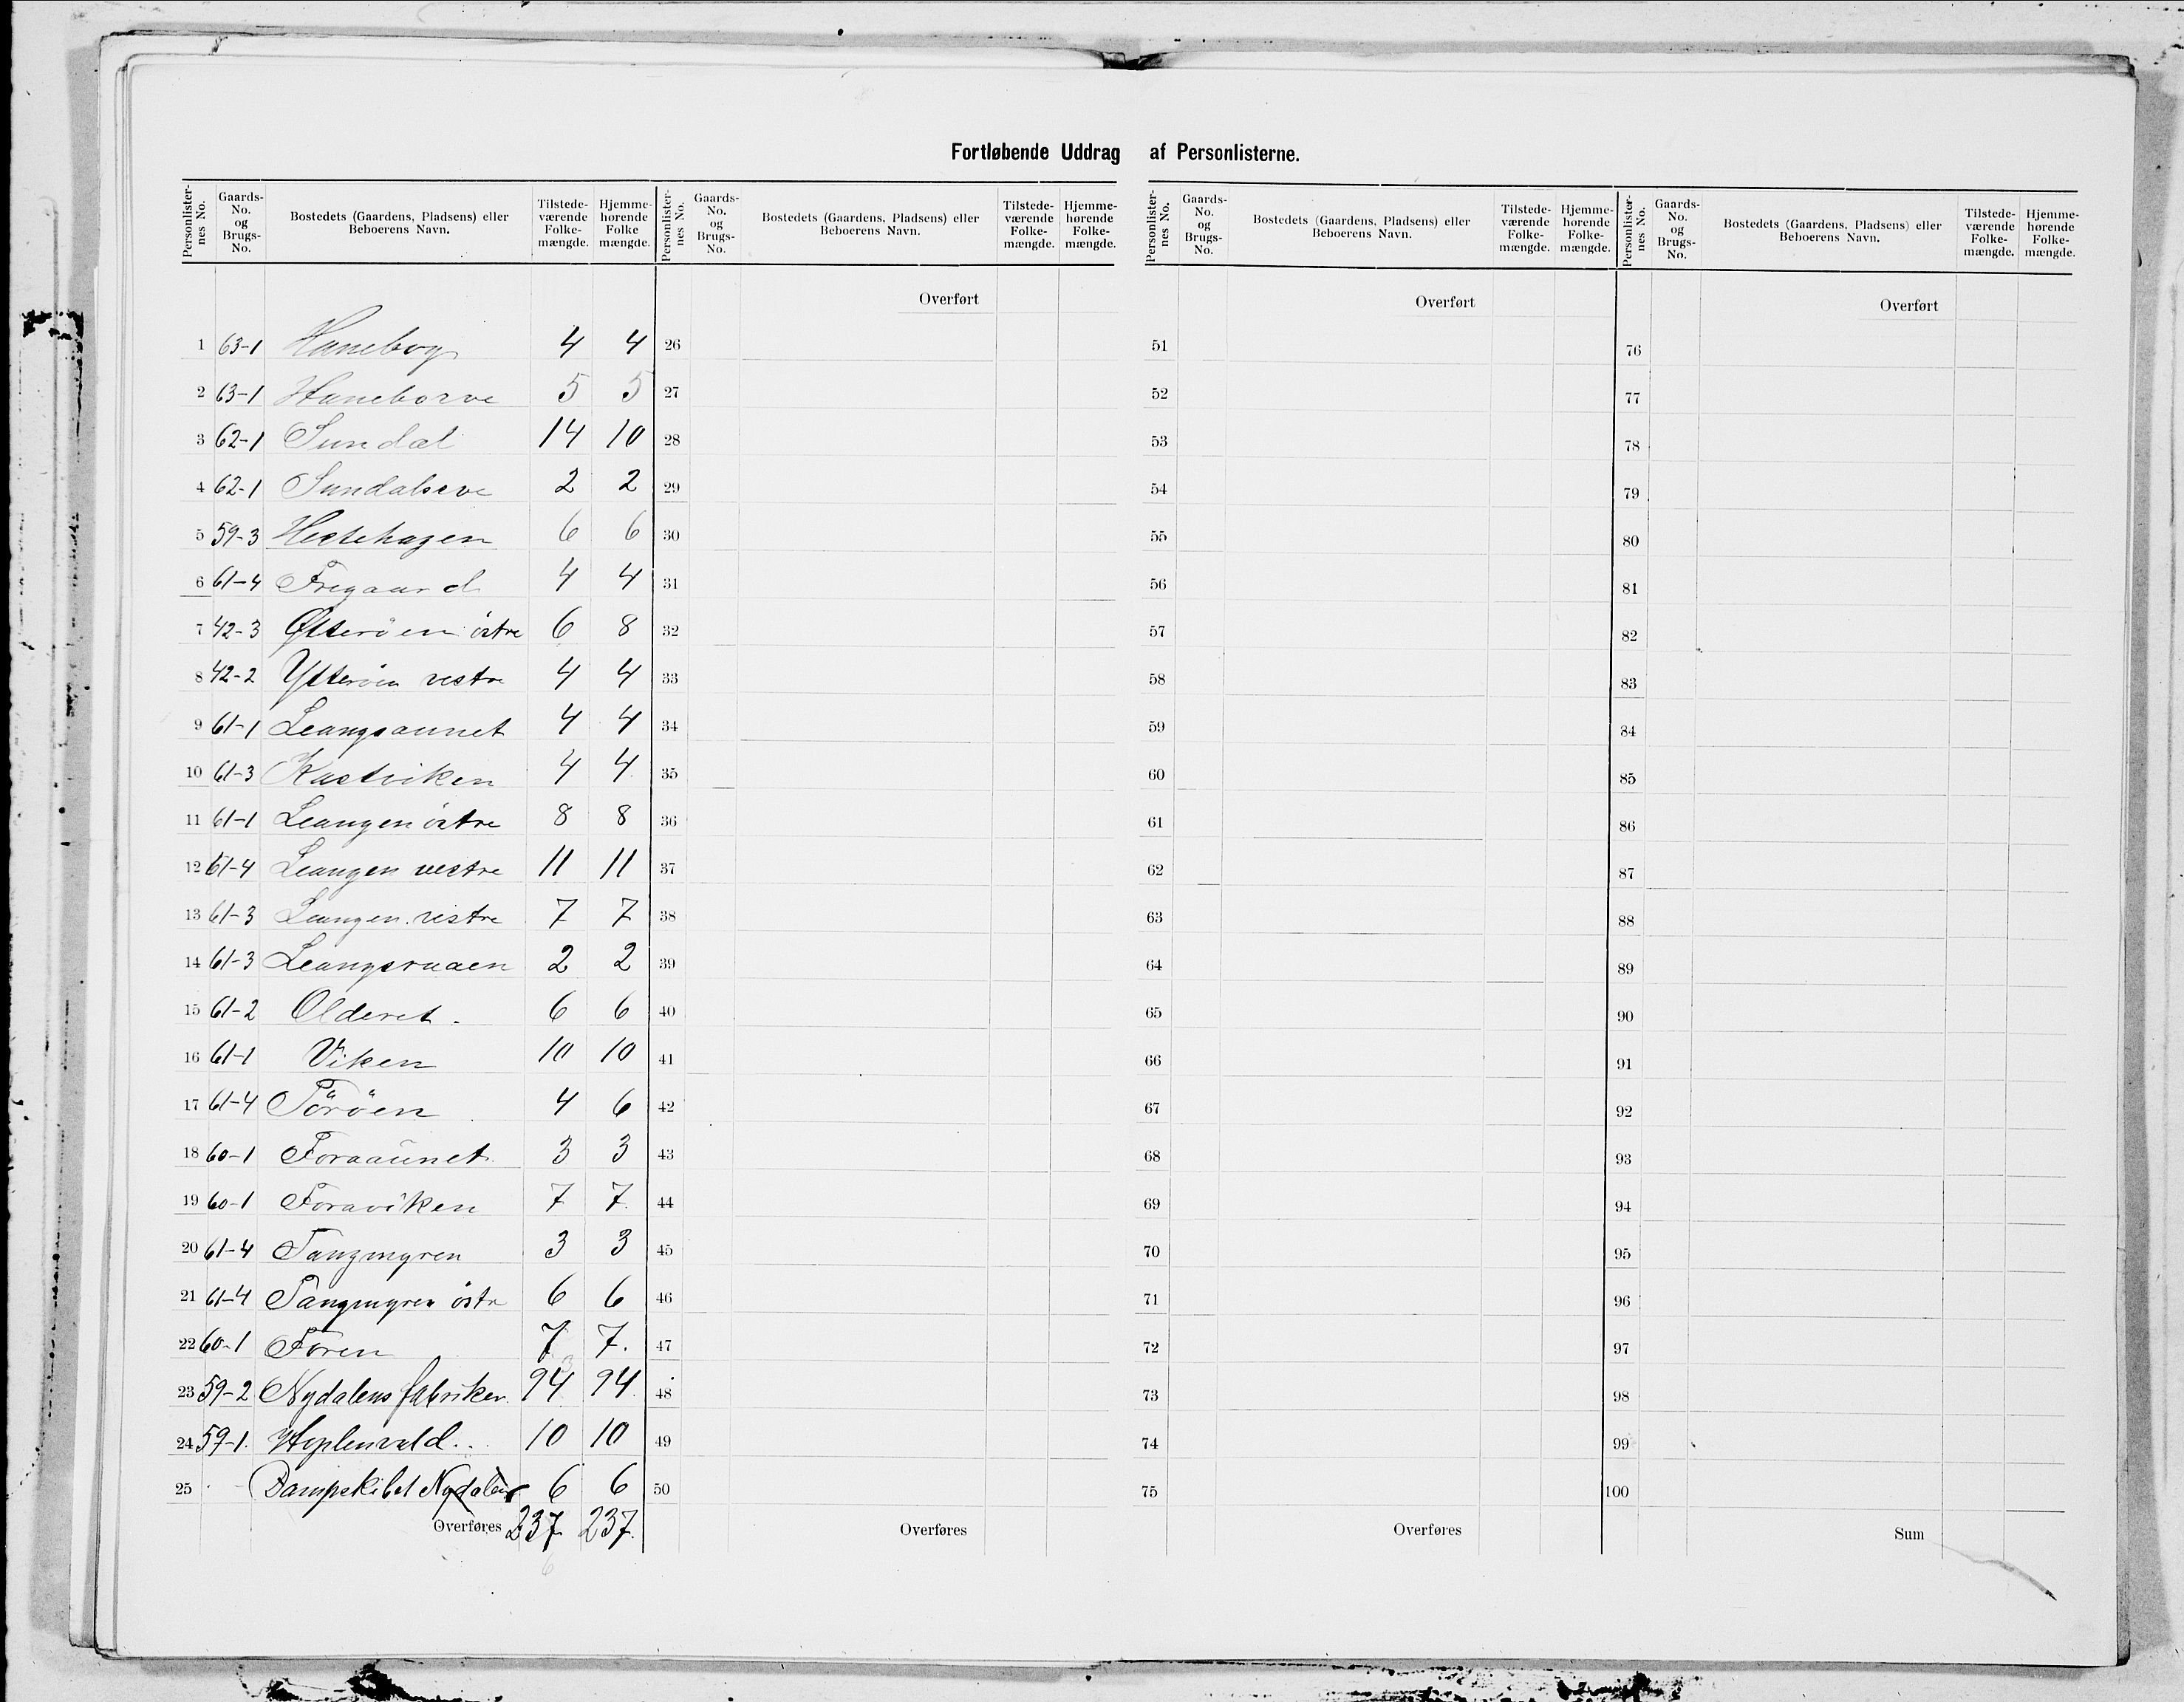 Fortløbende Uddrag af Personlisterne.
Personlister-nes No. Gaards-No. og Brugs-No. Bostedets (Gaardens, Pladsens) eller Beboerens Navn. Tilstede-værende Folke-mængde. Hjemme-hørende Folke mængde.
Personlister-nes No. Gaards-No. og Brugs-No. Bostedets (Gaardens, Pladsens) eller Beboerens Navn. Tilstede-værende Folke-mængde. Hjemme-hørende Folke-mængde.
Personlister-nes No. Gaards-No. og Brugs-No. Bostedets (Gaardens, Pladsens) eller Beboerens Navn. Tilstede-værende Folke-mængde. Hjemme-hørende Folke-mængde.
Personlister-nes No. Gaards-No. og Brugs-No. Bostedets (Gaardens, Pladsens) eller Beboerens Navn. Tilstede-værende Folke-mængde. Hjemme-hørende Folke-mængde.
Overført Overført Overført
1 63-1 Hanebog 4 4 26 51 76
2 63-1 Haneborve 5 5 27 52 77
3 62-1 Sundal 14 10 28 53 78
4 62-1 2 2 29 54 79
5 59-3 Hestehagen 6 6 30 55 80
6 61-4 Fregaard 4 4 31 56 81
7 42-3 Ytteröen östre 6 8 32 57 82
8 42-2 Ytteröen vestre 4 4 33 58 83
9 61-1 Leangsaunet 4 4 34 59 84
10 61-3 Kastviken 4 4 35 60 85
11 61-1 Leangen östre 8 8 36 61 86
12 61-4 Leangen vestre 11 11 37 62 87
13 61-3 Leangen vestre 7 7 38 63 88
14 61-3 Leangsraaen 2 2 39 64 89
15 61-2 Olderet. 6 6 40 65 90
16 61-1 Viken 10 10 41 66 91
17 61-4 Töröen 4 6 42 67 92
18 60-1 Foraaunet 3 3 43 68 93
19 60-1 Foraviken 7 7 44 69 94
20 61-4 Tangmyren 3 3 45 70 95
21 61-4 Tangmyren östr 6 6 46 71 96
22 60-1 Foren 7 7. 47 72 97
23 59-2 Nydalens fabriker. 94 94. 48 73 98
24 59-1. Hoplenvald.. 10 10 49 74 99
25 Dampskibet Nydalen 6 6 50 75 100
Overføres 237 237. Overføres Overføres Sum